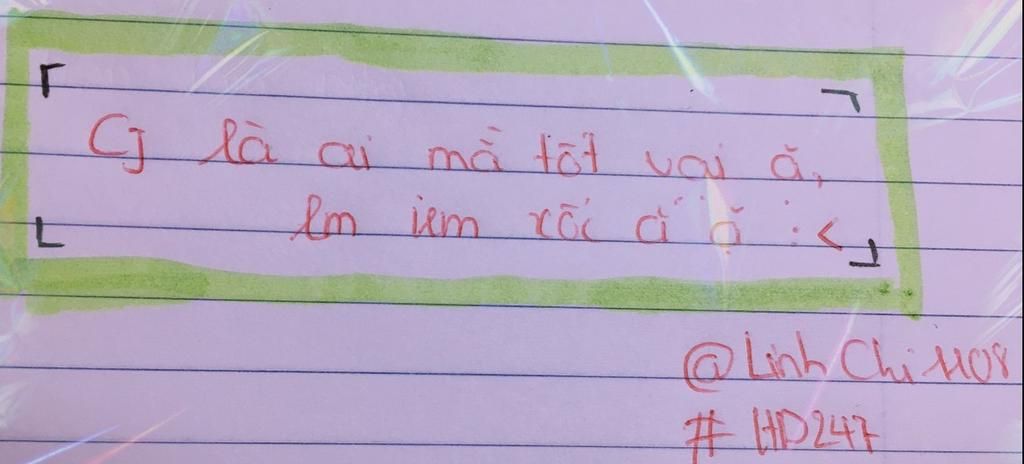 Cj là ai mà tốt vại ặ,
lm iem xốc cỉ ặ :<
@LinhChi1108
#HD247